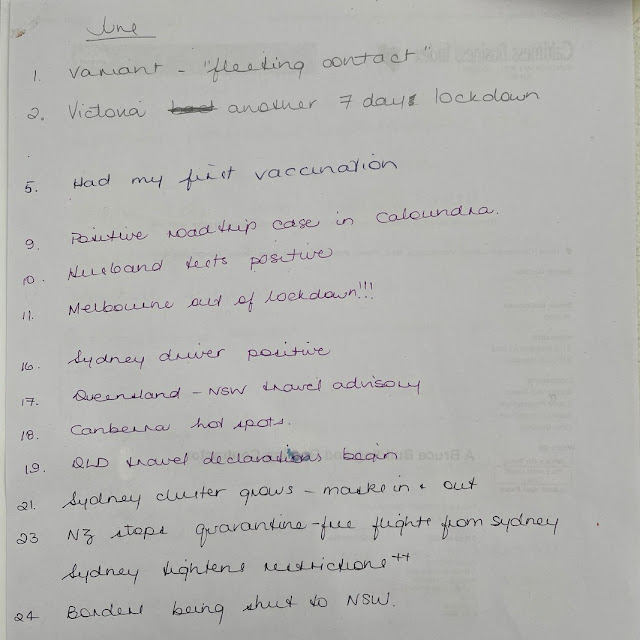 June
1. Variant - "fleeting contact"
2. Victoria another 7 day lockdown
5. Had my first vaccination
9. Positive road trip case in Caloundra.
10. Husband tests positive
11. Melbourne out of lockdown!!!
16. Sydney driver positive
17. Queensland - NSW travel advisory
18. Canberra hot spots.
19. QLD travel declarations begin
21. Sydney cluster grows - masks in + out
23 NZ stops quarantine-free flights from Sydney
Sydney tightens restrictions ++
24 Borders being shut to NSW.